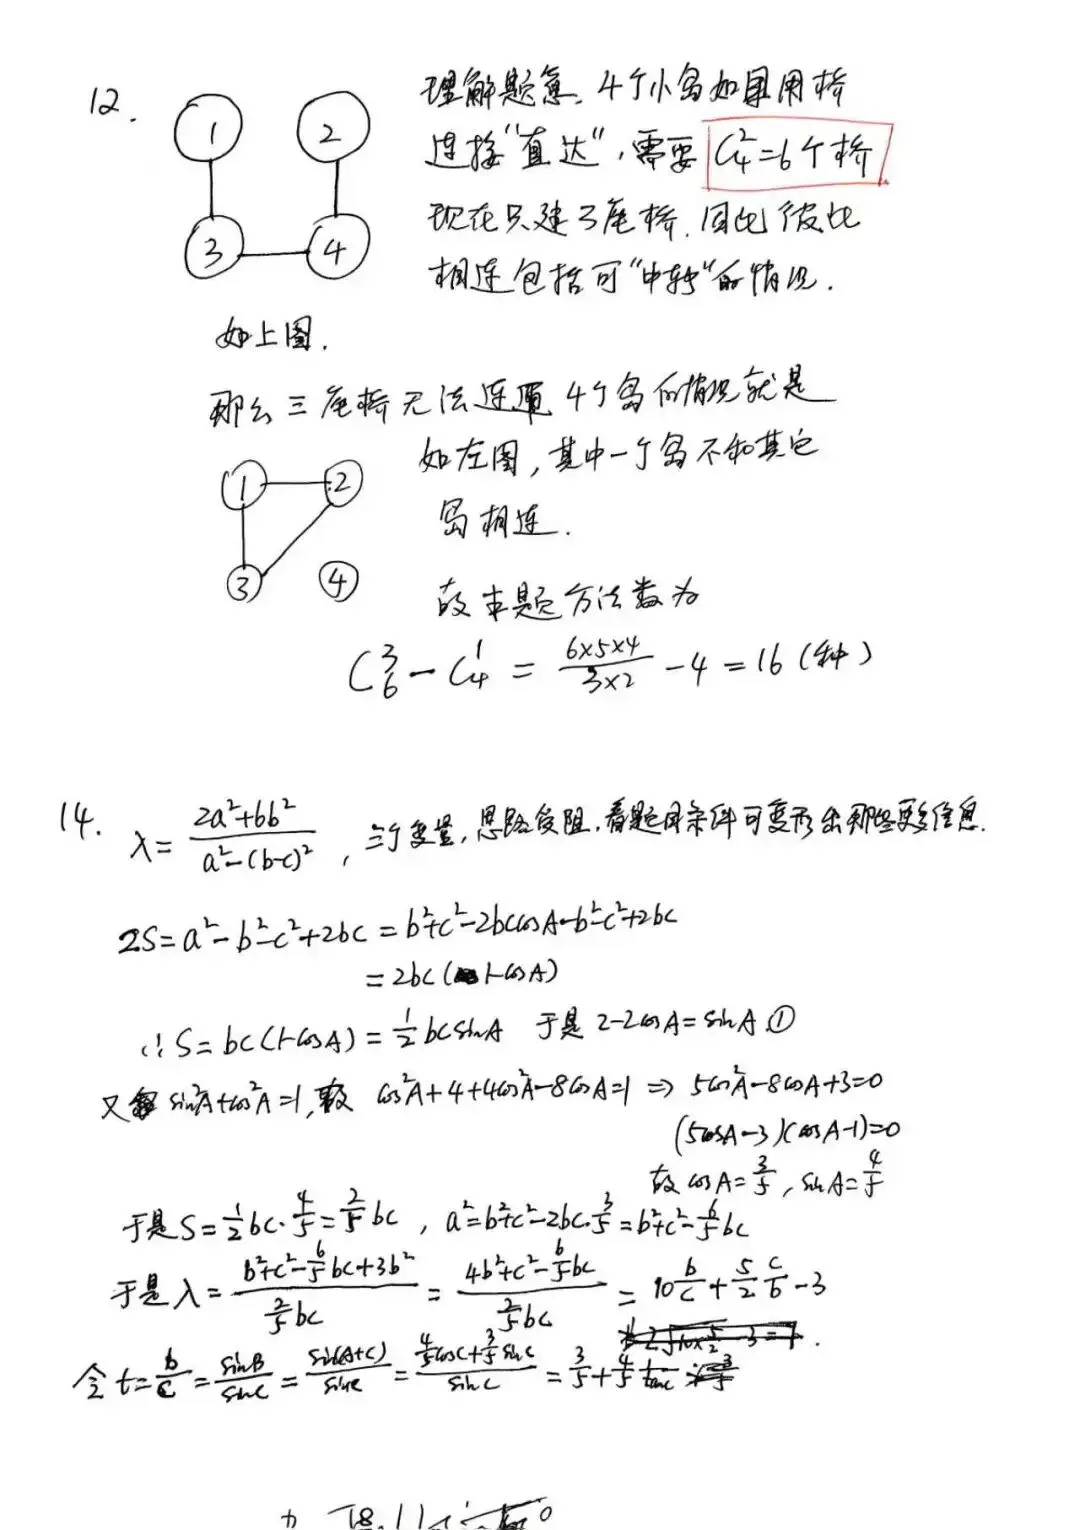 12.
1 2
3 4
理解题意，4个小岛如果用桥
连接“直达”，需要 C₄²=6个桥
现在只建3座桥，因此彼此
相连包括可“中转”的情况．
如上图．
那么三座桥无法连通4个岛的情况就是
如左图，其中一个岛不和其它
岛相连．
1 2
3 4
故本题方法数为
C₆³-C₄¹=(6×5×4)/(3×2)-4=16(种)
14. λ=(2a²+6b²)/(a²-(b-c)²)，三个变量，思路受阻，看题目条件可变形出那些更多信息．
2S=a²-b²-c²+2bc=b²+c²-2bccosA-b²-c²+2bc
=2bc(1-cosA)
∴S=bc(1-cosA)=½bcsinA 于是2-2cosA=sinA ①
又 sin²A+cos²A=1，故 cos²A+4+4cos²A-8cosA=1⇒5cos²A-8cosA+3=0
(5cosA-3)(cosA-1)=0
故cosA=3/5，sinA=4/5
于是S=½bc·4/5=2/5bc，a²=b²+c²-2bc·3/5=b²+c²-6/5bc
于是λ=(b²+c²-6/5bc+3b²)/(2/5bc)=(4b²+c²-6/5bc)/(2/5bc)=10b/c+5/2c/b-3
令t=b/c=sinB/sinC=sin(A+C)/sinC=(4/5cosC+3/5sinC)/sinC=3/5+4/5tanC